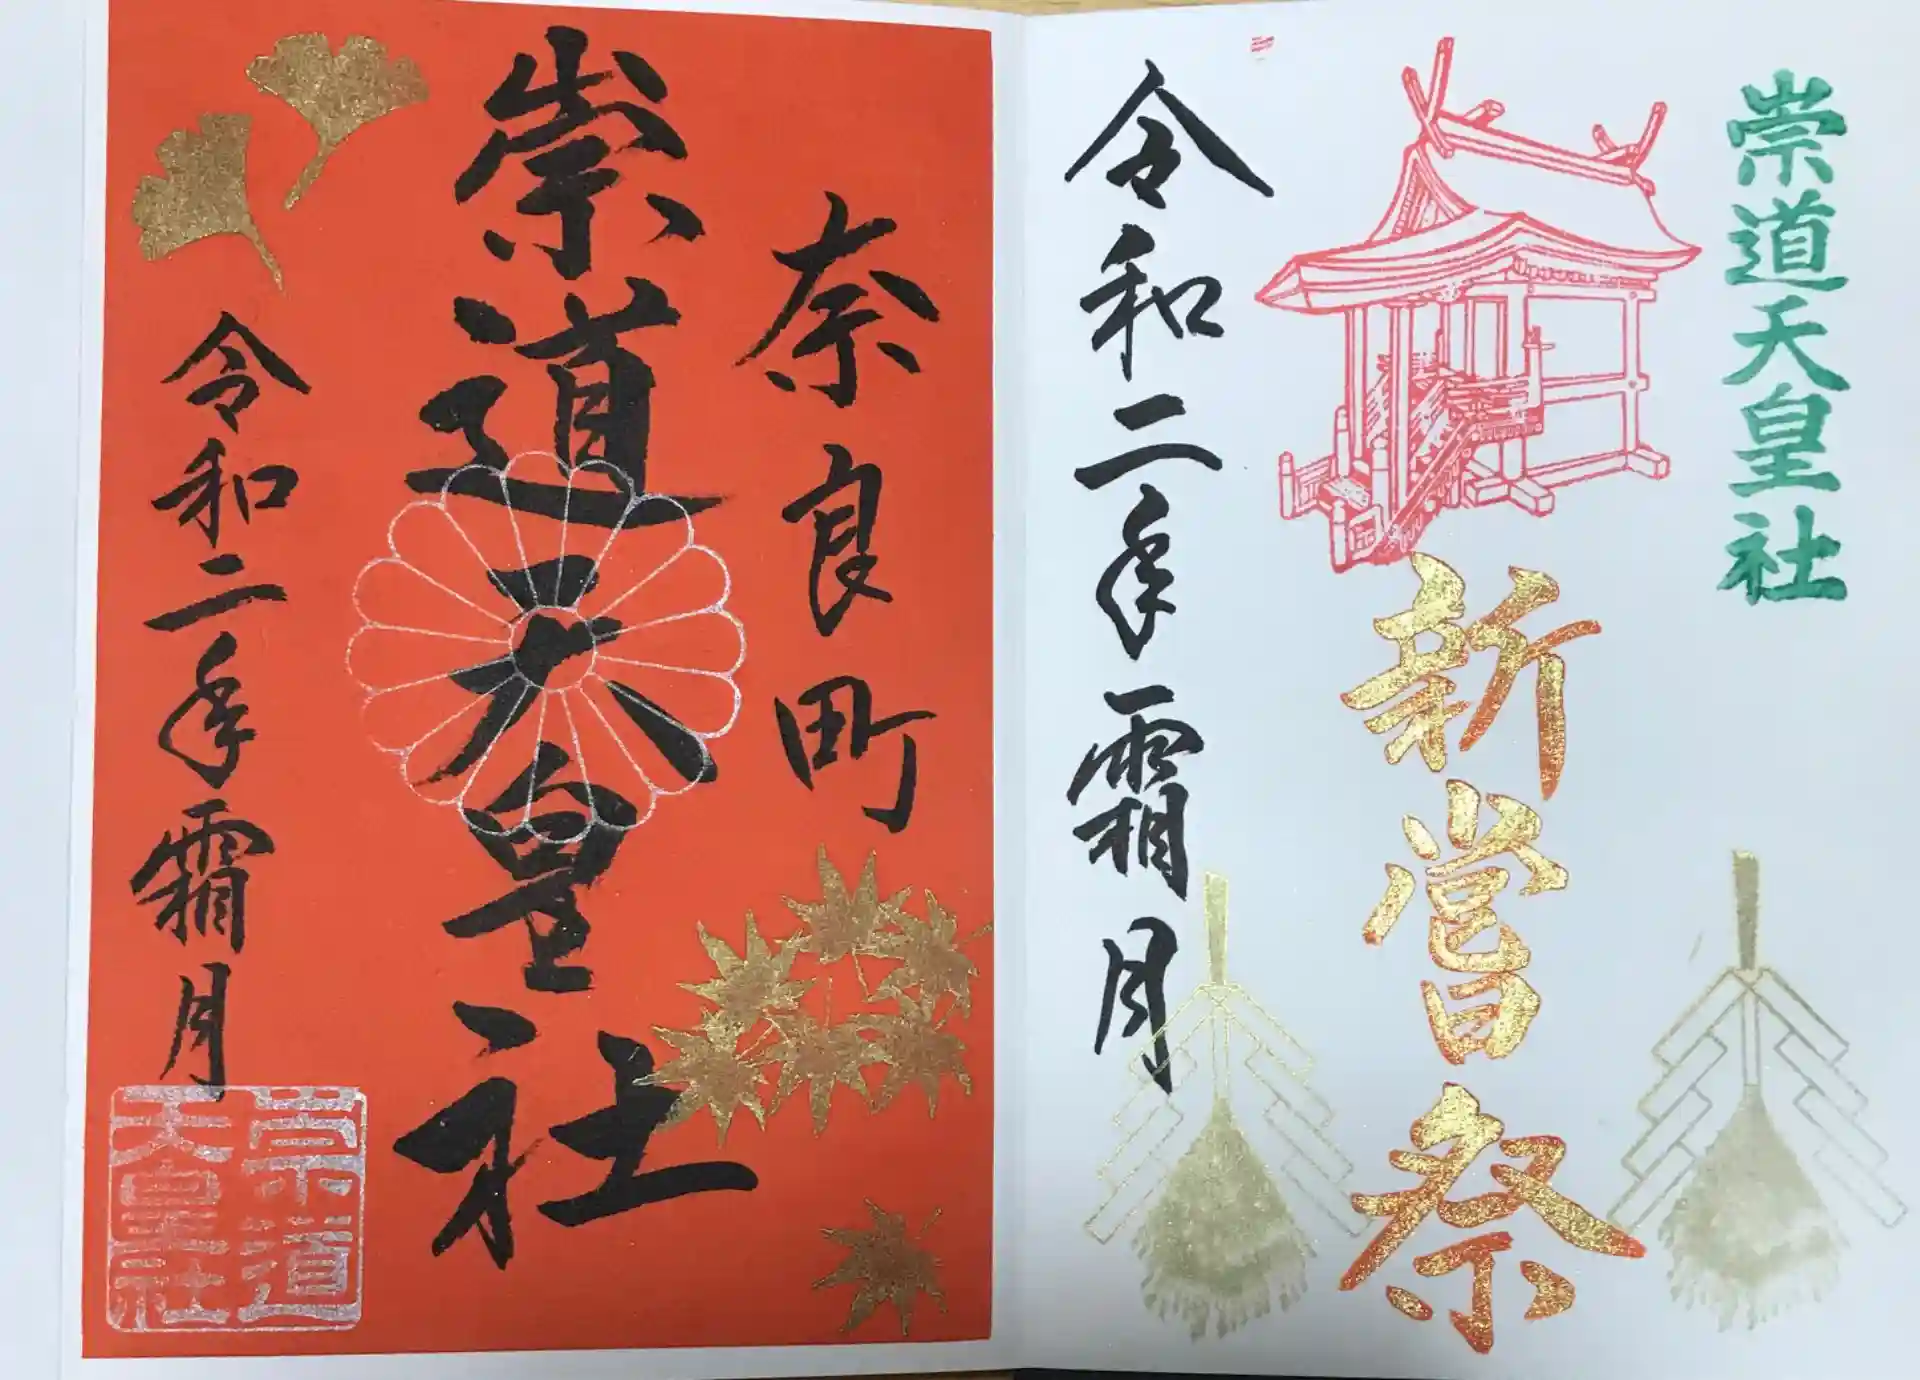 崇道天皇社
新嘗祭
令和二年霜月
奈良町
崇道天皇社
令和二年霜月
崇道
天皇社